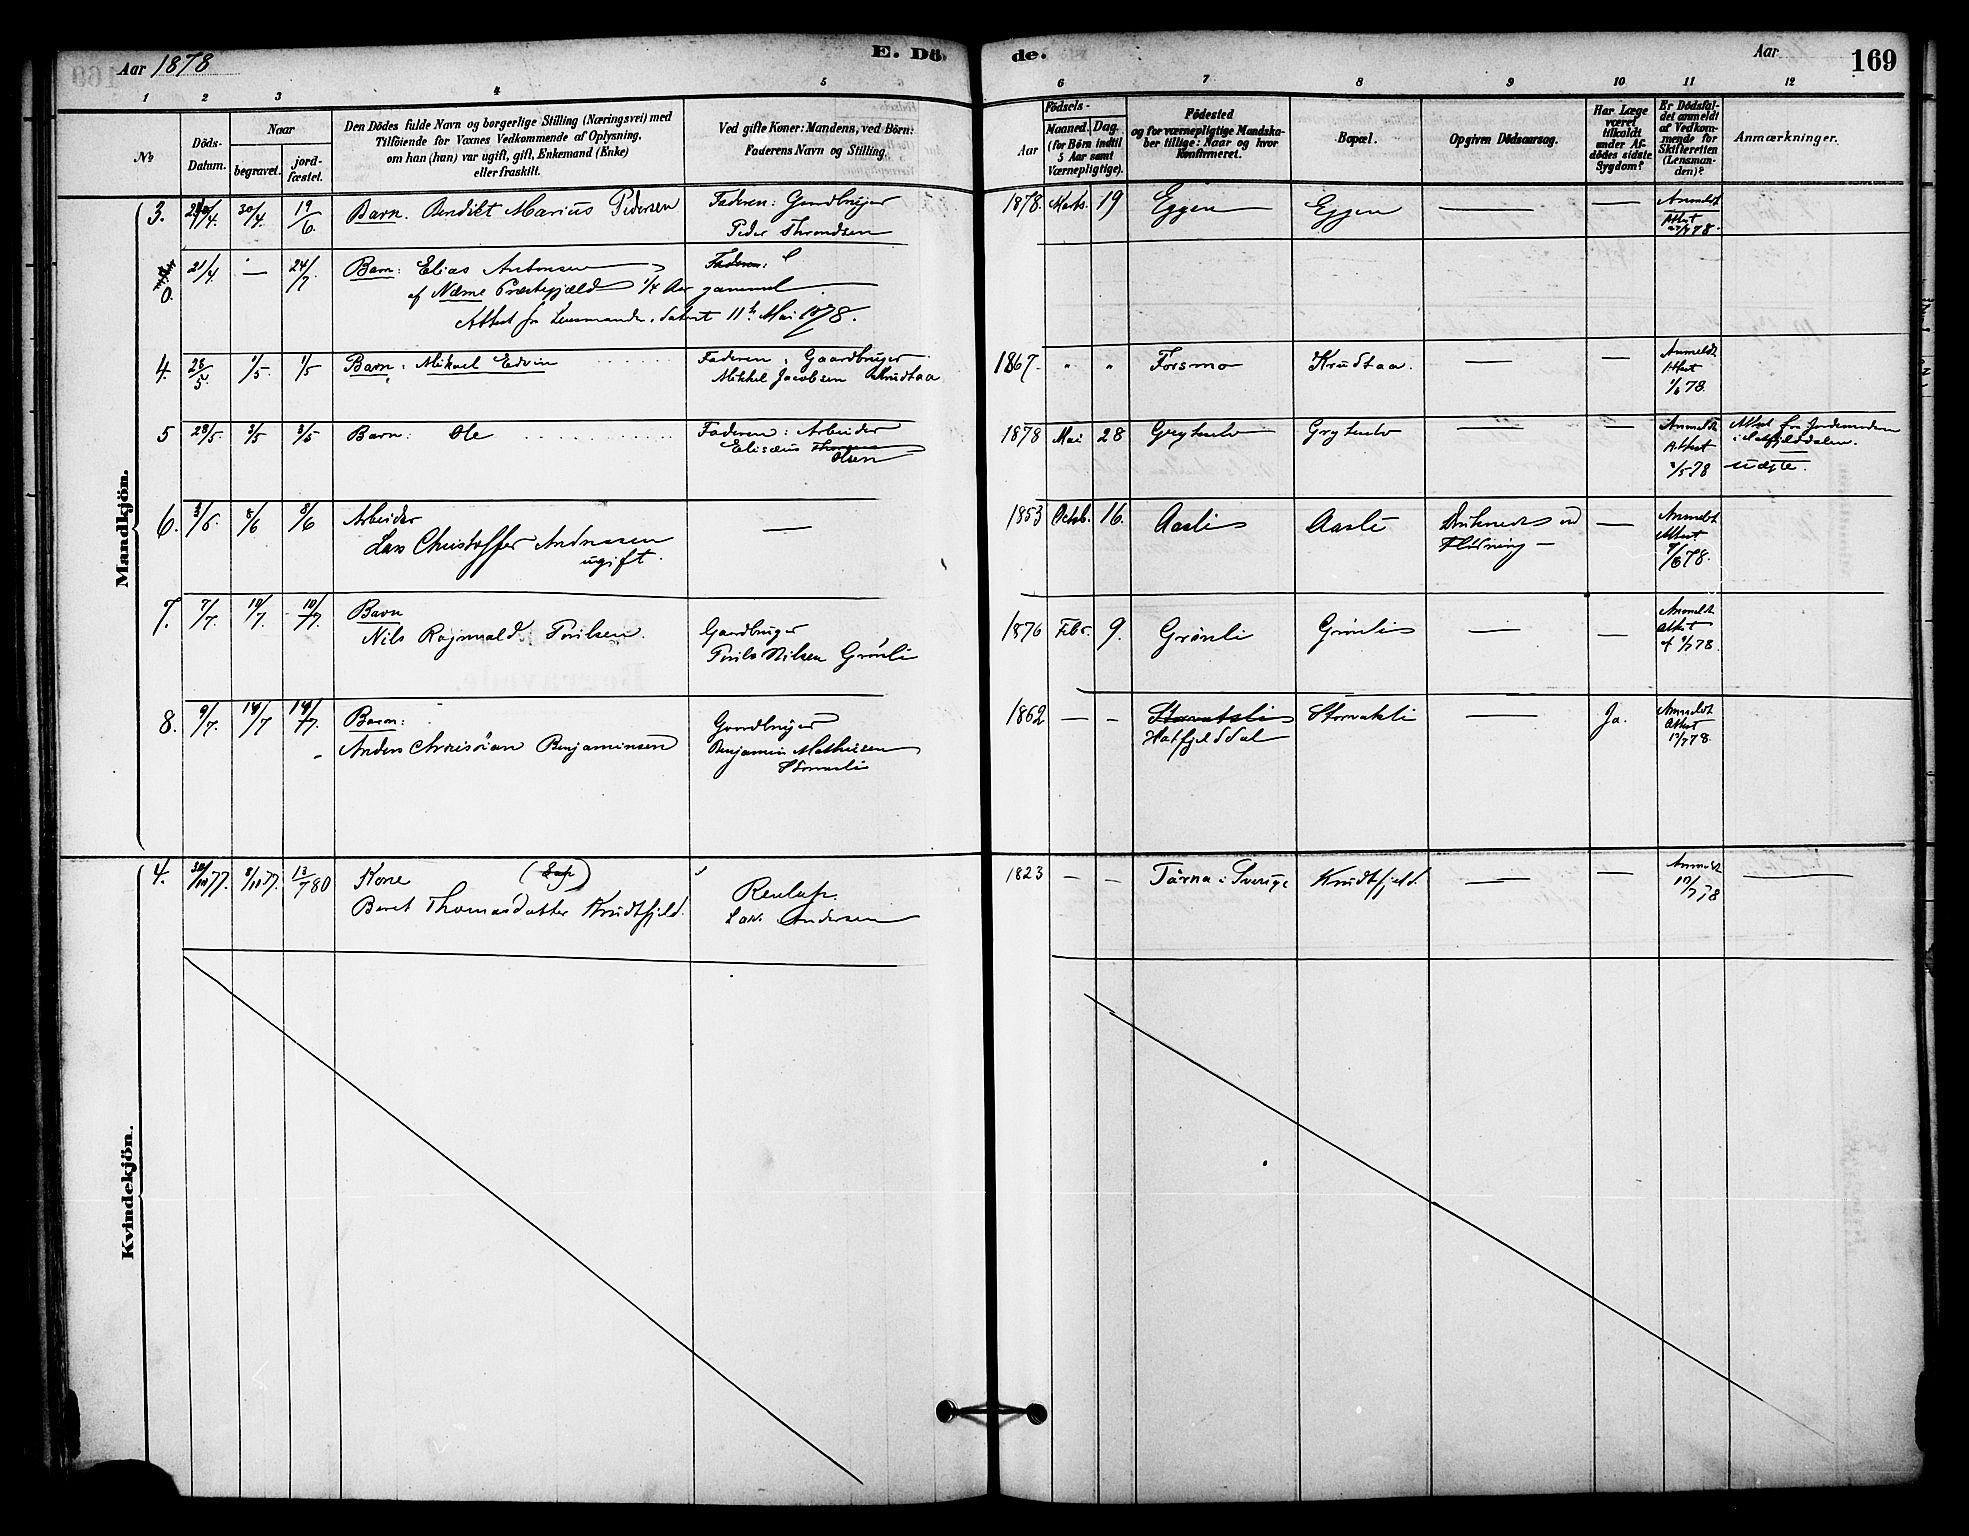 Aar 1878
E. Dö-
de.
Aar
169
1 2 3 4 5 6 7 8 9 10 11 12
No
Döds-
Datum.
Naar
begravet.
jord-
fæstet.
Den Dödes fulde Navn og borgerlige Stilling (Næringsvei) med
Tilföiende for Voxnes Vedkommende af Oplysning,
om han (hun) var ugift, gift, Enkemand (Enke)
eller fraskilt.
Ved gifte Koner: Mandens, ved Börn:
Faderens Navn og Stilling.
Födsels-
Aar
Maaned. Dag.
(for Börn indtil
5 Aar samt
Værnepligtige).
Födested
og for værnepligtige Mandska-
ber tillige: Naar og hvor
Konfirmeret.
Bopæl.
Opgiven Dödsaarsag.
Har Læge
været
tilkaldt
under Af-
dödes sidste
Sygdom?
Er Dödsfal-
det anmeldt
af Vedkom-
mende for
Skifteretten
(Lensman-
den)?
Anmærkninger.
Mandkjön.
3. 30/4. 19/6. Barn. Bendikt Marius Pedersen Faderen: Gaardbruger
Peder Throndsen
1878. Marts. 19 Eggen Eggen — — Anmeldt
Attest
0. 21/4 — 24/7 Barn: Elias Antonsen Faderen:
af Næsne Præstegjæld 1/4 Aar gammel
Attest fra Lensmanden, datert 11te Mai 1878.
4. 28/5. 1/5 1/5 Barn: Mikael Edvin Faderen: Gaardbruger
Mikkel Jacobsen Krudtaa
1867. " " Forsmo Krudtaa. — — Anmeldt.
Attest
1/6 78.
5 28/5. 3/5 3/5 Barn: Ole Faderen: Arbeider
Elisæus
Olsen
1878 Mai 28 Gryteselv Gryteselv Anmeldt
Attest
3/5 78
Attest fra Jordemoderen
i Hatfjelddalen.
6. 3/6. 8/6 8/6 Arbeider
Lars Christoffer Andreasen
ugift.
—
1853 Octob. 16. Aasli Aasli Druknede ved
Flödning — — Anmeldt.
Attest
7/6 78.
7. 7/7. 10/7. 10/7. Barn
Nils Ragnvald Torilsen. Gaardbruger
Torils Nilsen Grönli
1876 Febr. 9. Grönli Grönli — — Anmeldt
Attest
af 9/7 78.
8. 9/7. 14/7 14/7. Barn:
Anders Benjaminsen Gaardbruger
Benjamin Mathisen
1862 — — Storvatsli
Hatfjelddal Storvatsli — Ja. Anmeldt
Attest
12/7 78.
Kvindekjön.
4. 13/7 80 Kone
Beret Thomasdatter Krudtfjeld. Renlap.
Lars Andersen
1823 — — Tärna i Sverige Krudtfjeld. — — Anmeldt —